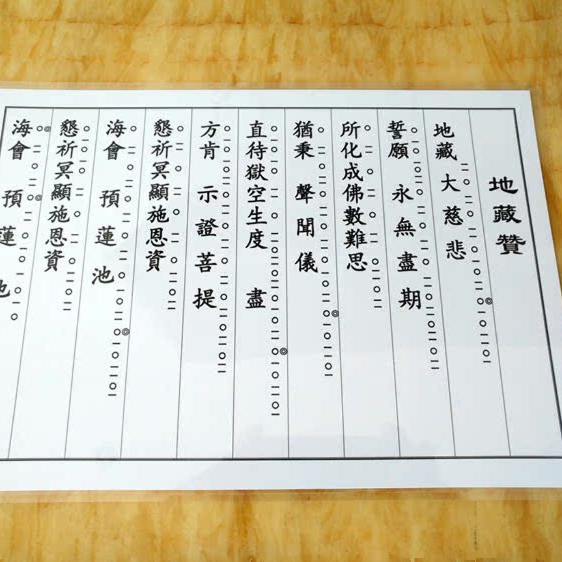 地藏贊
地藏大慈悲
誓願永無盡期
所化成佛數難思
猶秉聲聞儀
直待獄空生度盡
方肯示證菩提
懇祈冥顯施恩資
海會預蓮池
懇祈冥顯施恩資
海會預蓮池